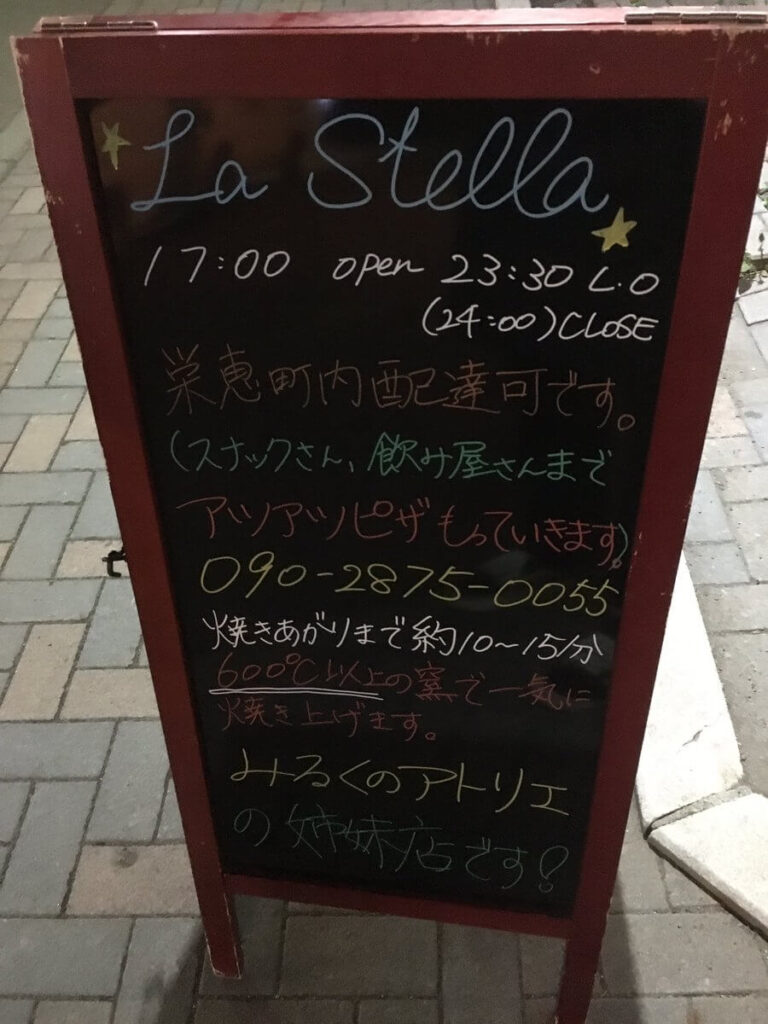 La Stella
17:00 open 23:30 L.O
(24:00)CLOSE
栄恵町内配達可です。
(スナックさん、飲み屋さんまで
アツアツピザもっていきます)
090-2875-0055
焼きあがりまで約10〜15分
600℃以上の窯で一気に
焼き上げます。
みるくのアトリエ
の姉妹店です!